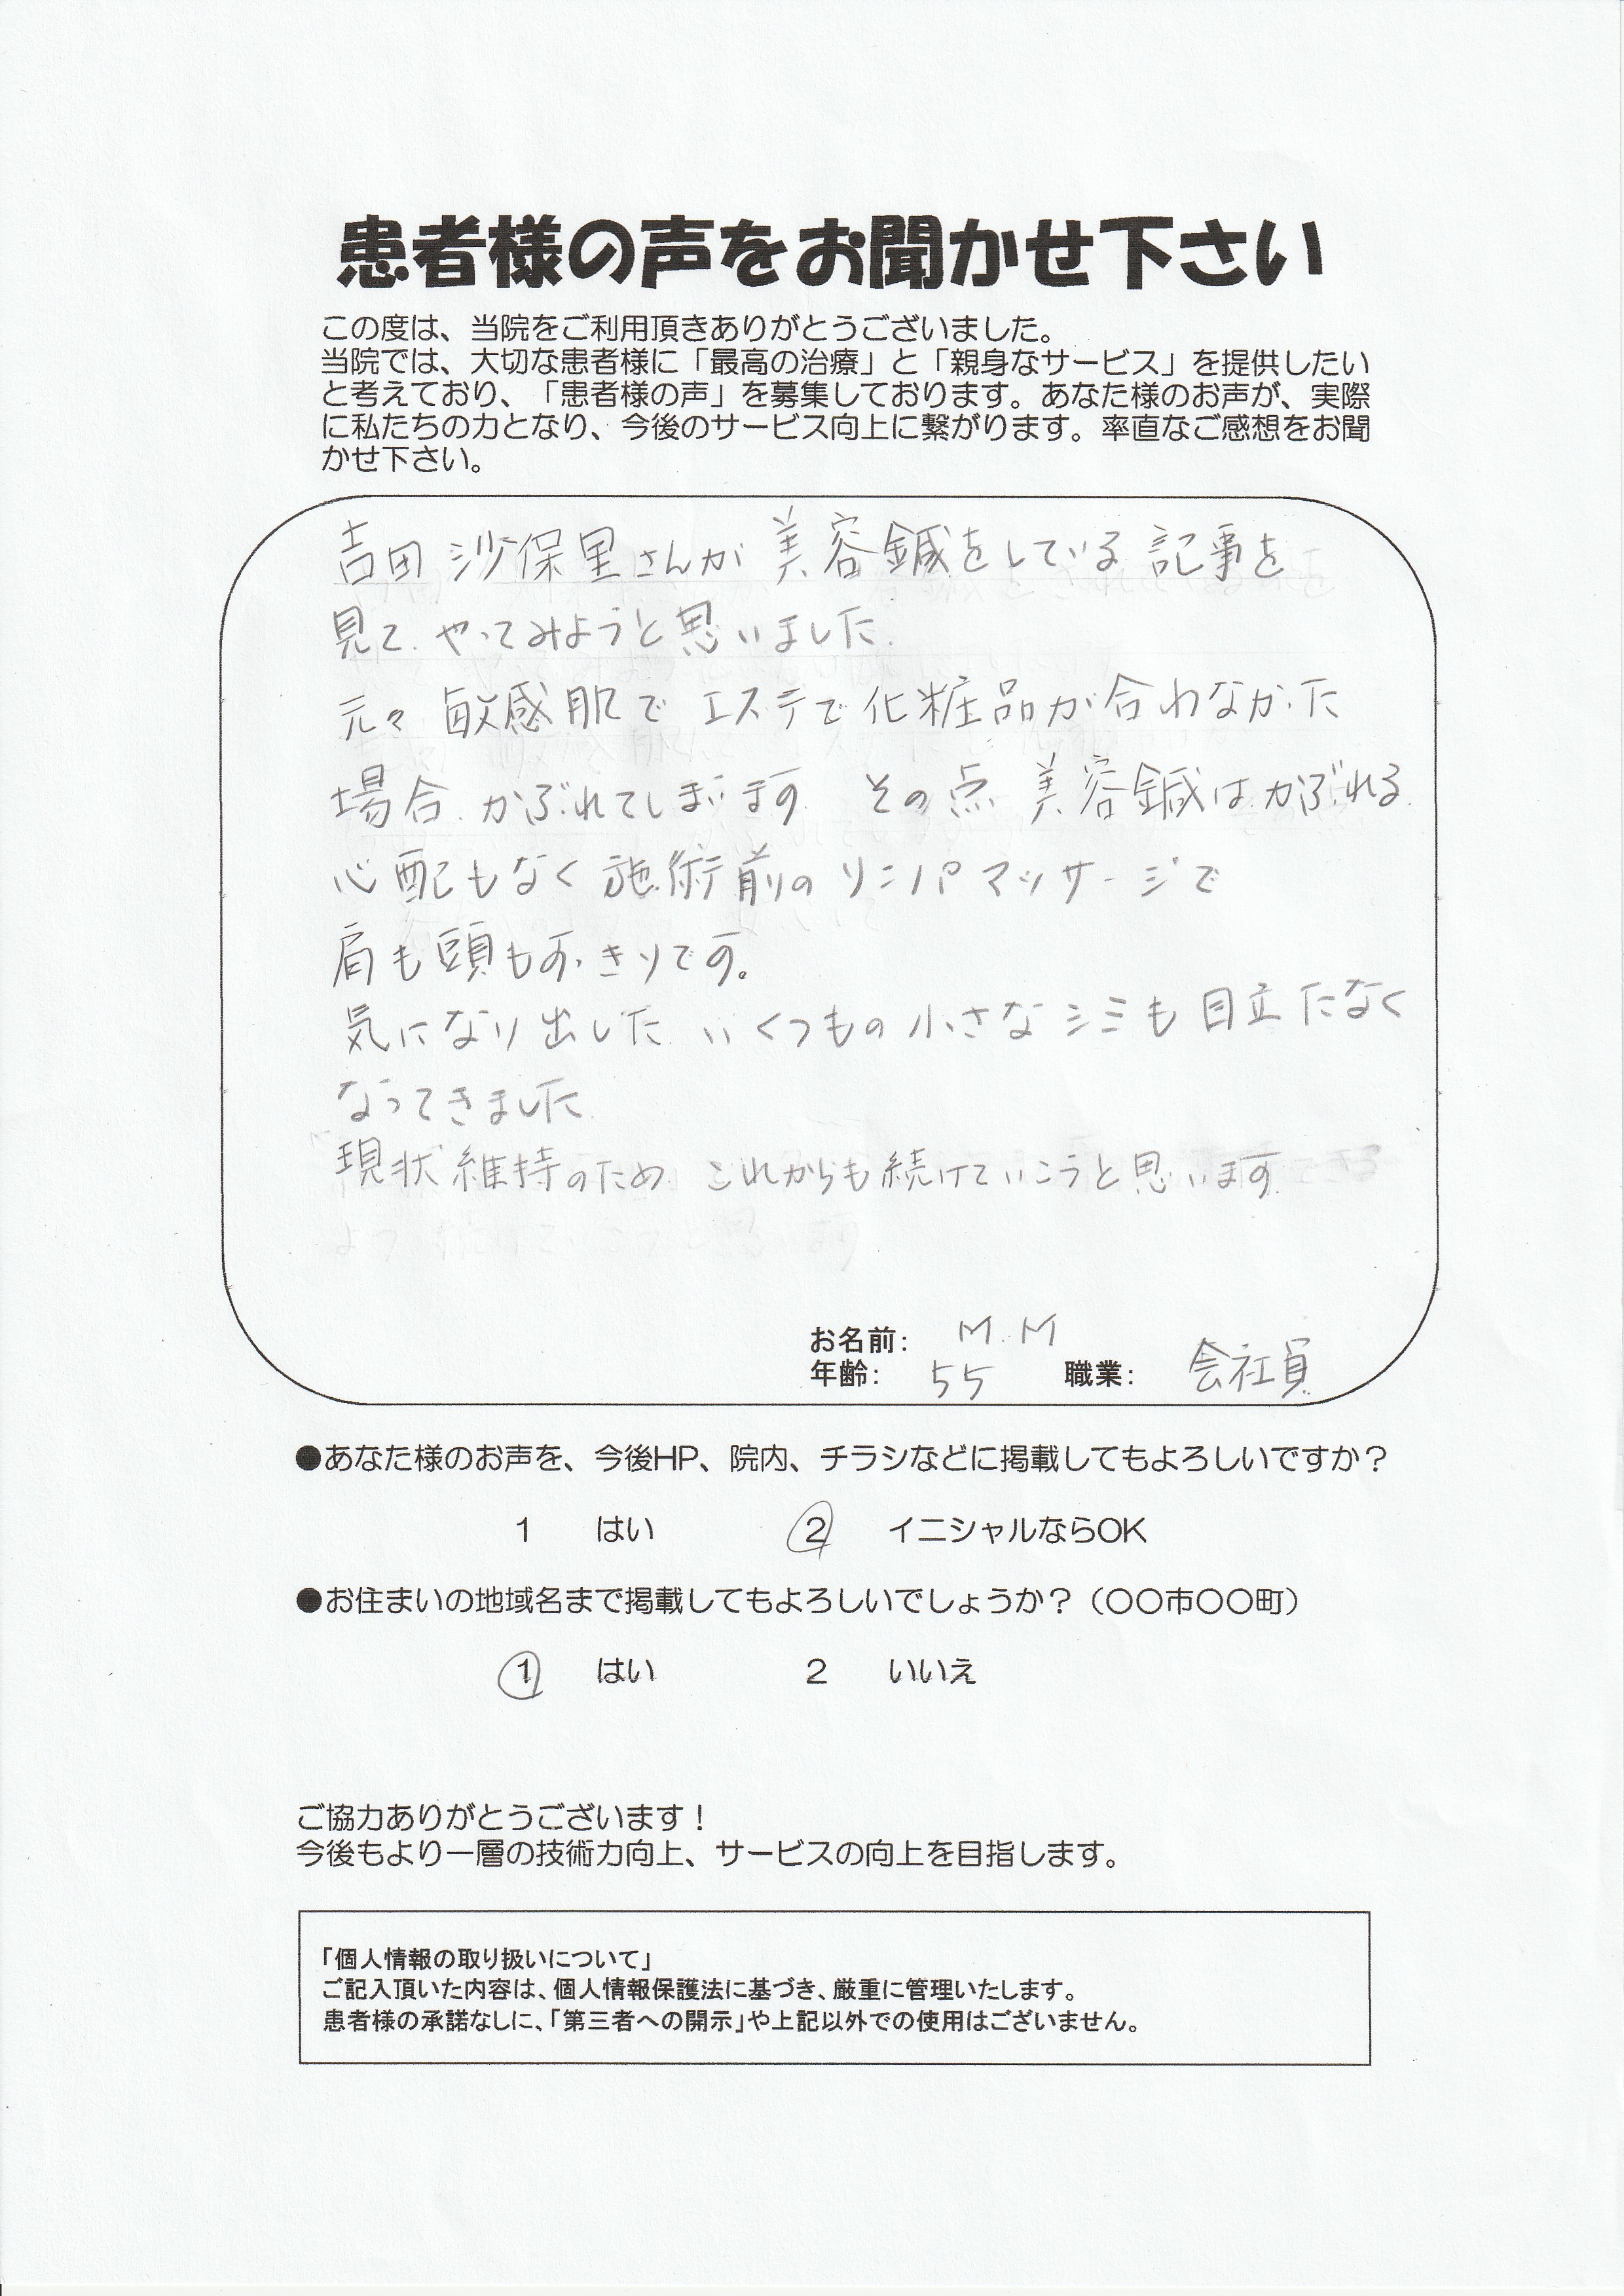 患者様の声をお聞かせ下さい
この度は、当院をご利用頂きありがとうございました。
当院では、大切な患者様に「最高の治療」と「親身なサービス」を提供したい
と考えており、「患者様の声」を募集しております。あなた様のお声が、実際
に私たちの力となり、今後のサービス向上に繋がります。率直なご感想をお聞
かせ下さい。
吉田沙保里さんが 美容鍼をしている 記事を
見て、やってみようと思いました。
元々 敏感肌で エステで化粧品が合わなかった
場合、かぶれてしまいます。 その点 美容鍼はかぶれる
心配もなく 施術前のリンパマッサージで
肩も頭もすっきりです。
気になり出した いくつもの小さなシミも 目立たなく
なってきました。
現状維持のため これからも続けていこうと思います。
お名前: M.M
年齢: 55 職業: 会社員
●あなた様のお声を、今後HP、院内、チラシなどに掲載してもよろしいですか？
1 はい 2 イニシャルならOK
●お住まいの地域名まで掲載してもよろしいでしょうか？（〇〇市〇〇町）
1 はい 2 いいえ
ご協力ありがとうございます！
今後もより一層の技術力向上、サービスの向上を目指します。
「個人情報の取り扱いについて」
ご記入頂いた内容は、個人情報保護法に基づき、厳重に管理いたします。
患者様の承諾なしに、「第三者への開示」や上記以外での使用はございません。